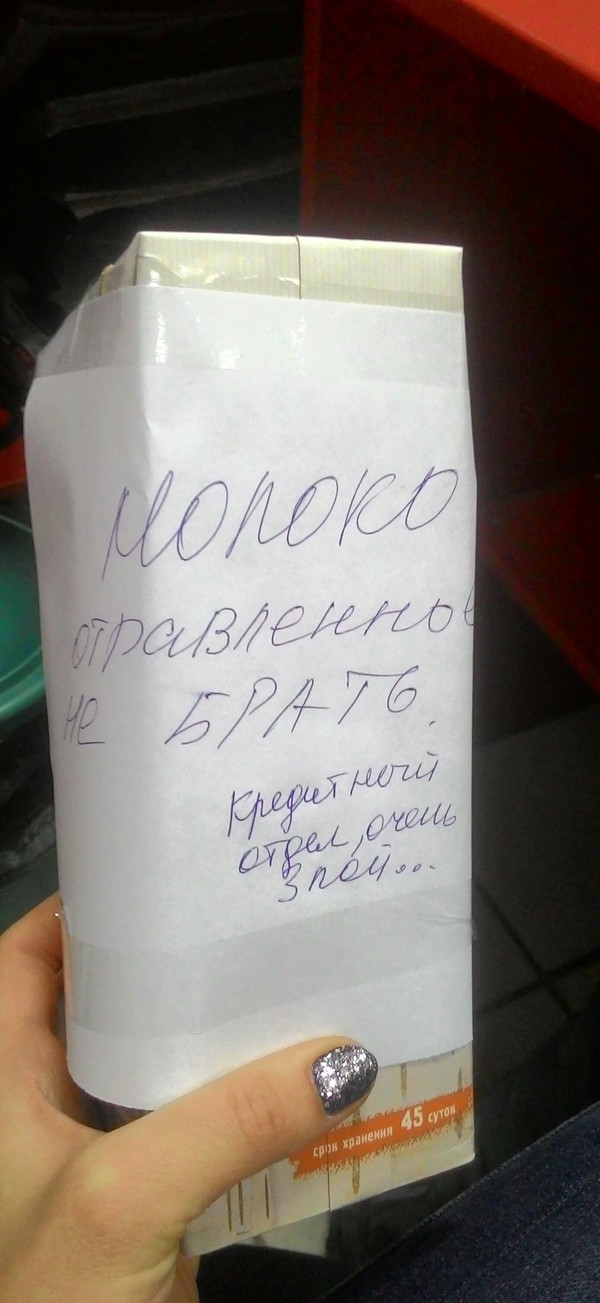 Молоко
отравленное
не БРАТЬ.
Кредитный
отдел, очень
злой...
срок хранения 45 суток